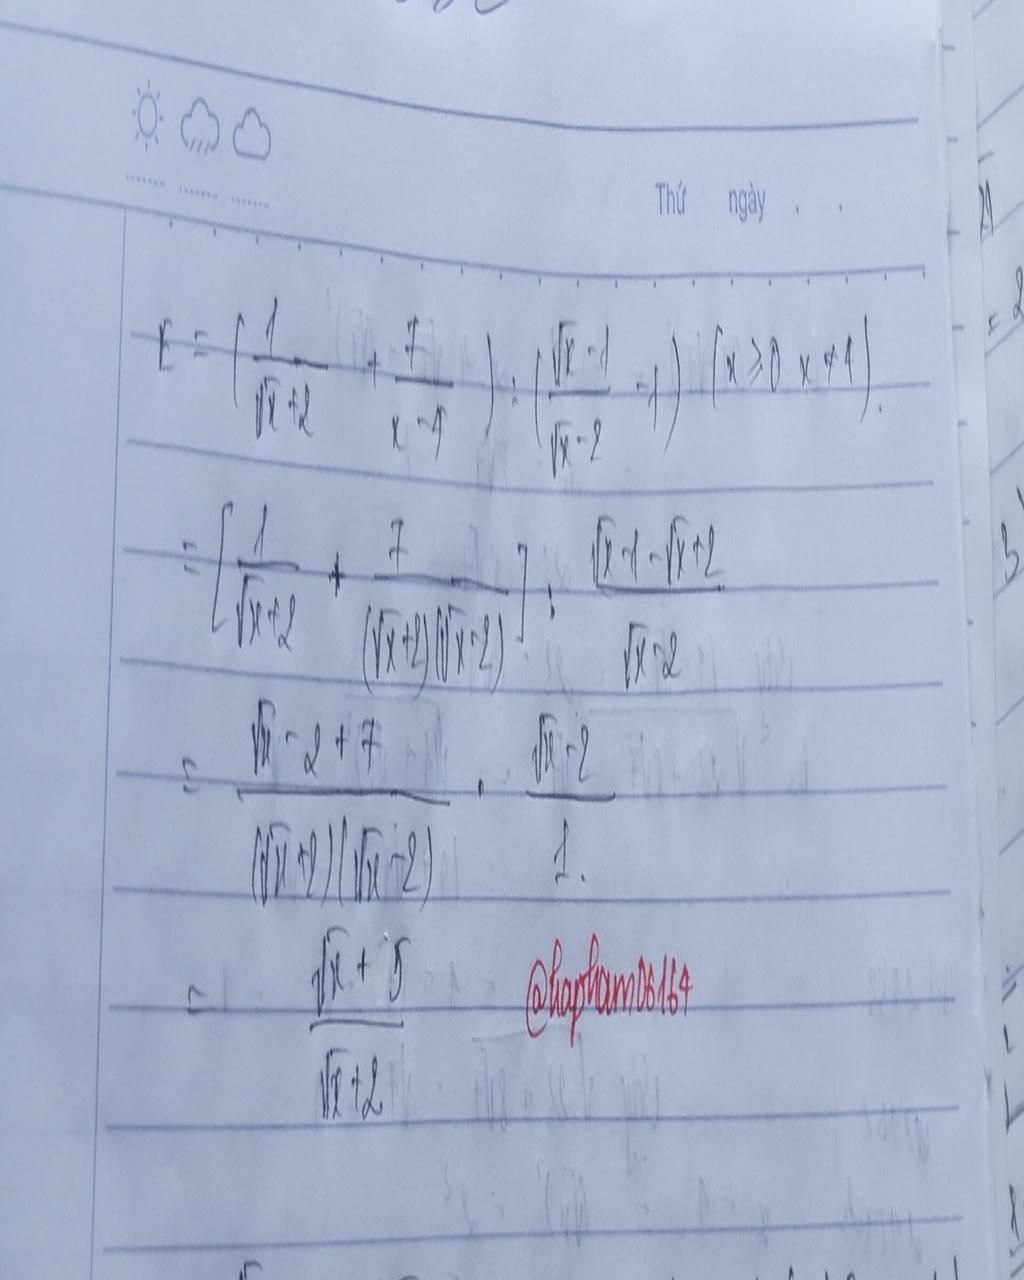 Thứ ngày . .
E = (1/(√x+2) + 7/(x-4)) : ((√x-1)/(√x-2) - 1) (x ≥ 0 x ≠ 4).
= [1/(√x+2) + 7/((√x+2)(√x-2))] : (√x-1-√x+2)/(√x-2)
= (√x-2+7)/((√x+2)(√x-2)) . (√x-2)/1.
= (√x+5)/(√x+2) @hapham06164